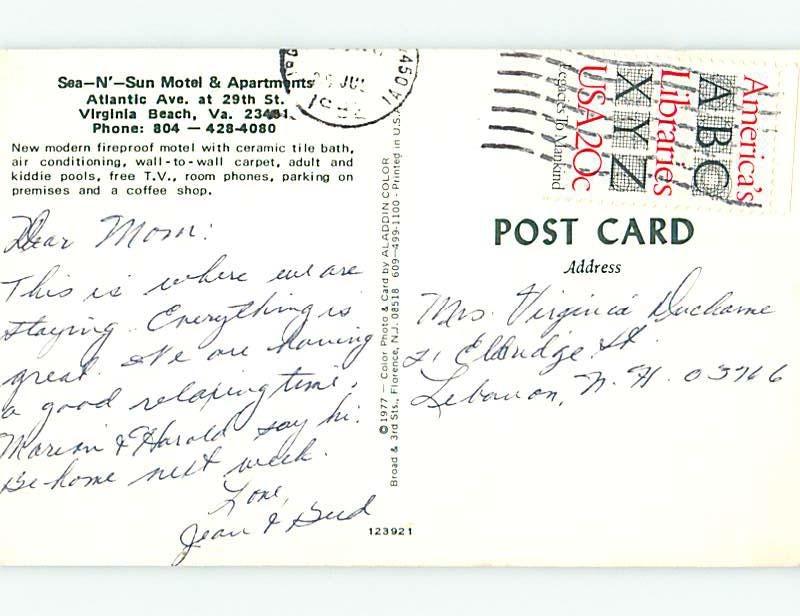 Sea–N'–Sun Motel & Apartments
Atlantic Ave. at 29th St.
Virginia Beach, Va. 23451
Phone: 804 — 428-4080
New modern fireproof motel with ceramic tile bath,
air conditioning, wall-to-wall carpet, adult and
kiddie pools, free T.V., room phones, parking on
premises and a coffee shop.
Dear Mom:
This is where we are
staying. Everything is
great. We are having
a good relaxing time.
Marion & Harold say hi.
Be home next week.
Love,
Jean &
© 1977 – Color Photo & Card by ALADDIN COLOR
Broad & 3rd Sts., Florence, N.J. 08518 609-499-1100 - Printed in U.S.A.
123921
JUL
1982
America's
Libraries
USA 20c
Legacies To Mankind
ABC
XYZ
POST CARD
Address
Mrs. Virginia Ducharme
21 Eldridge St
Lebanon, N. H. 03766